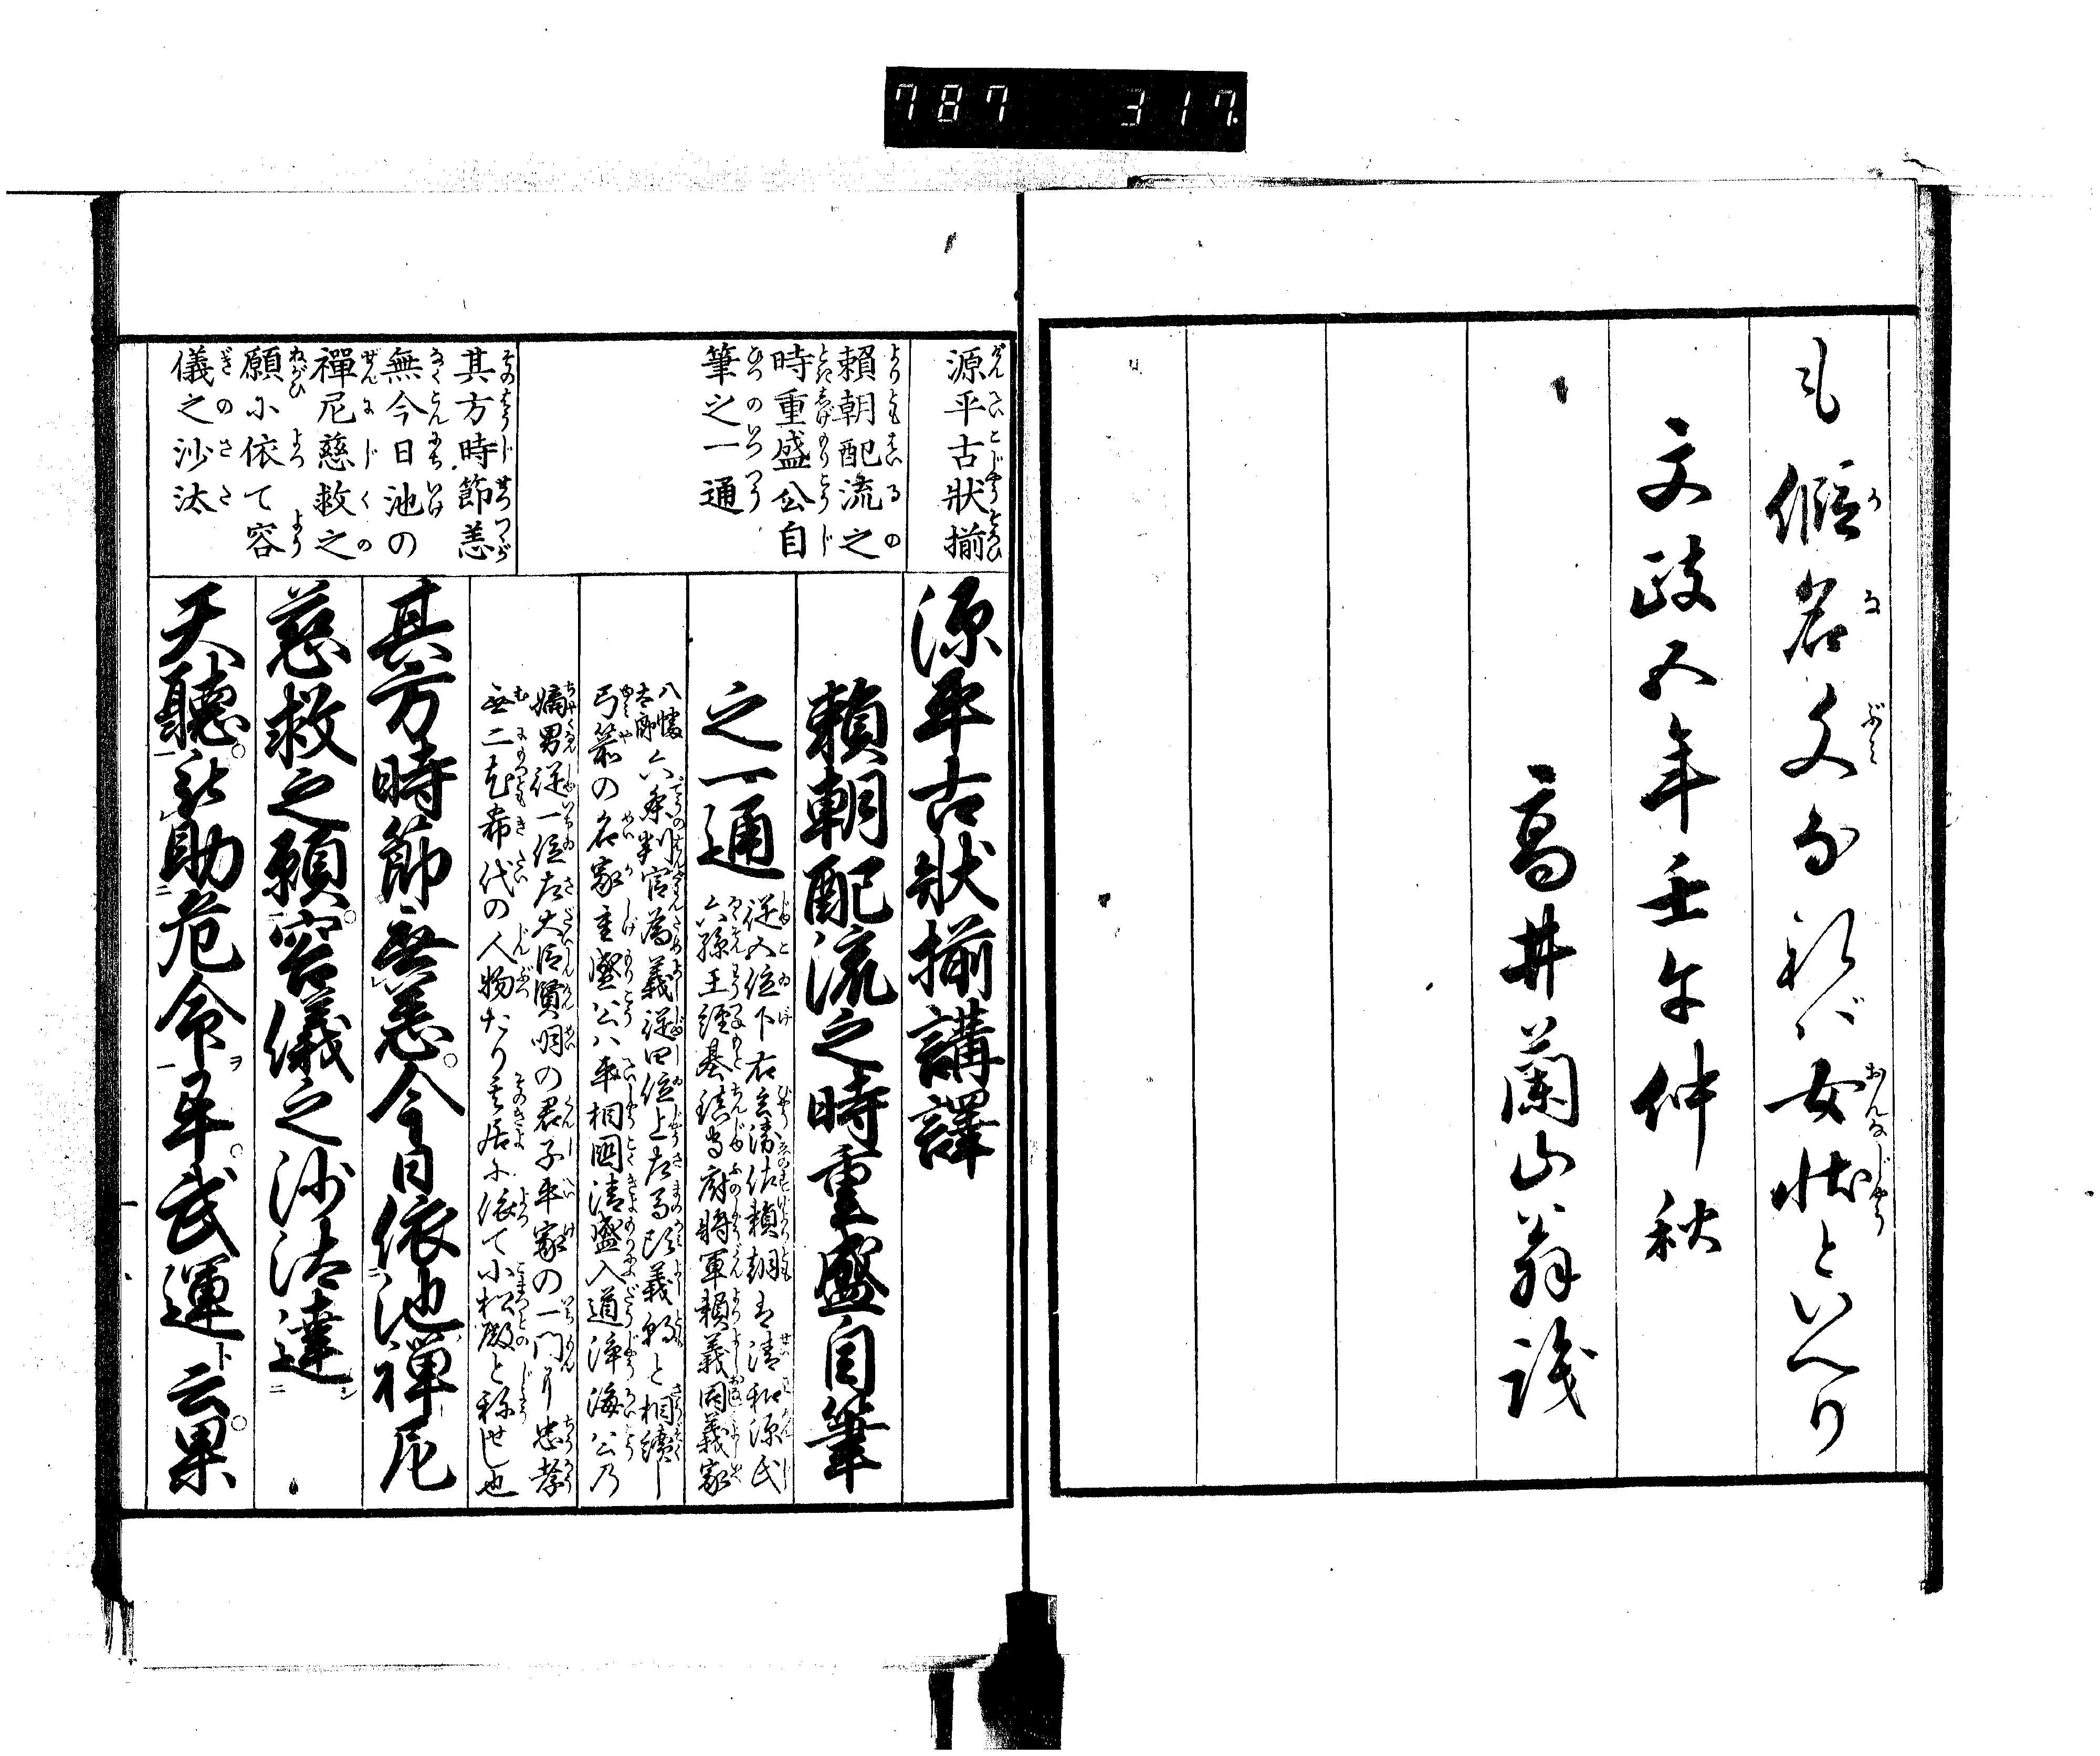 787 317
も假名文なれば女状といへり
文政五年壬午仲秋
高井蘭山翁識
源平古狀揃
賴朝配流之
時重盛公自
筆之一通
其方時節恙
無今日池の
禪尼慈救之
願に依て容
儀之沙汰
源平古狀揃講譯
賴朝配流之時重盛自筆
之一通
従五位下右兵衛佐頼朝は清和源氏
六孫王經基鎮守府將軍頼義同義家
八幡太郎六条判官為義従四位上左馬頭義朝と相續し
弓箭の名家重盛公ハ平相國清盛入道浄海公乃
嫡男従一位左大臣賢明の君子平家の一門より忠孝
無二尤希代の人物たり其居に依て小松殿と称せし也
其方時節無恙今日依池禪尼
慈救之願容儀之沙汰達
天聽被助危命平武運云果